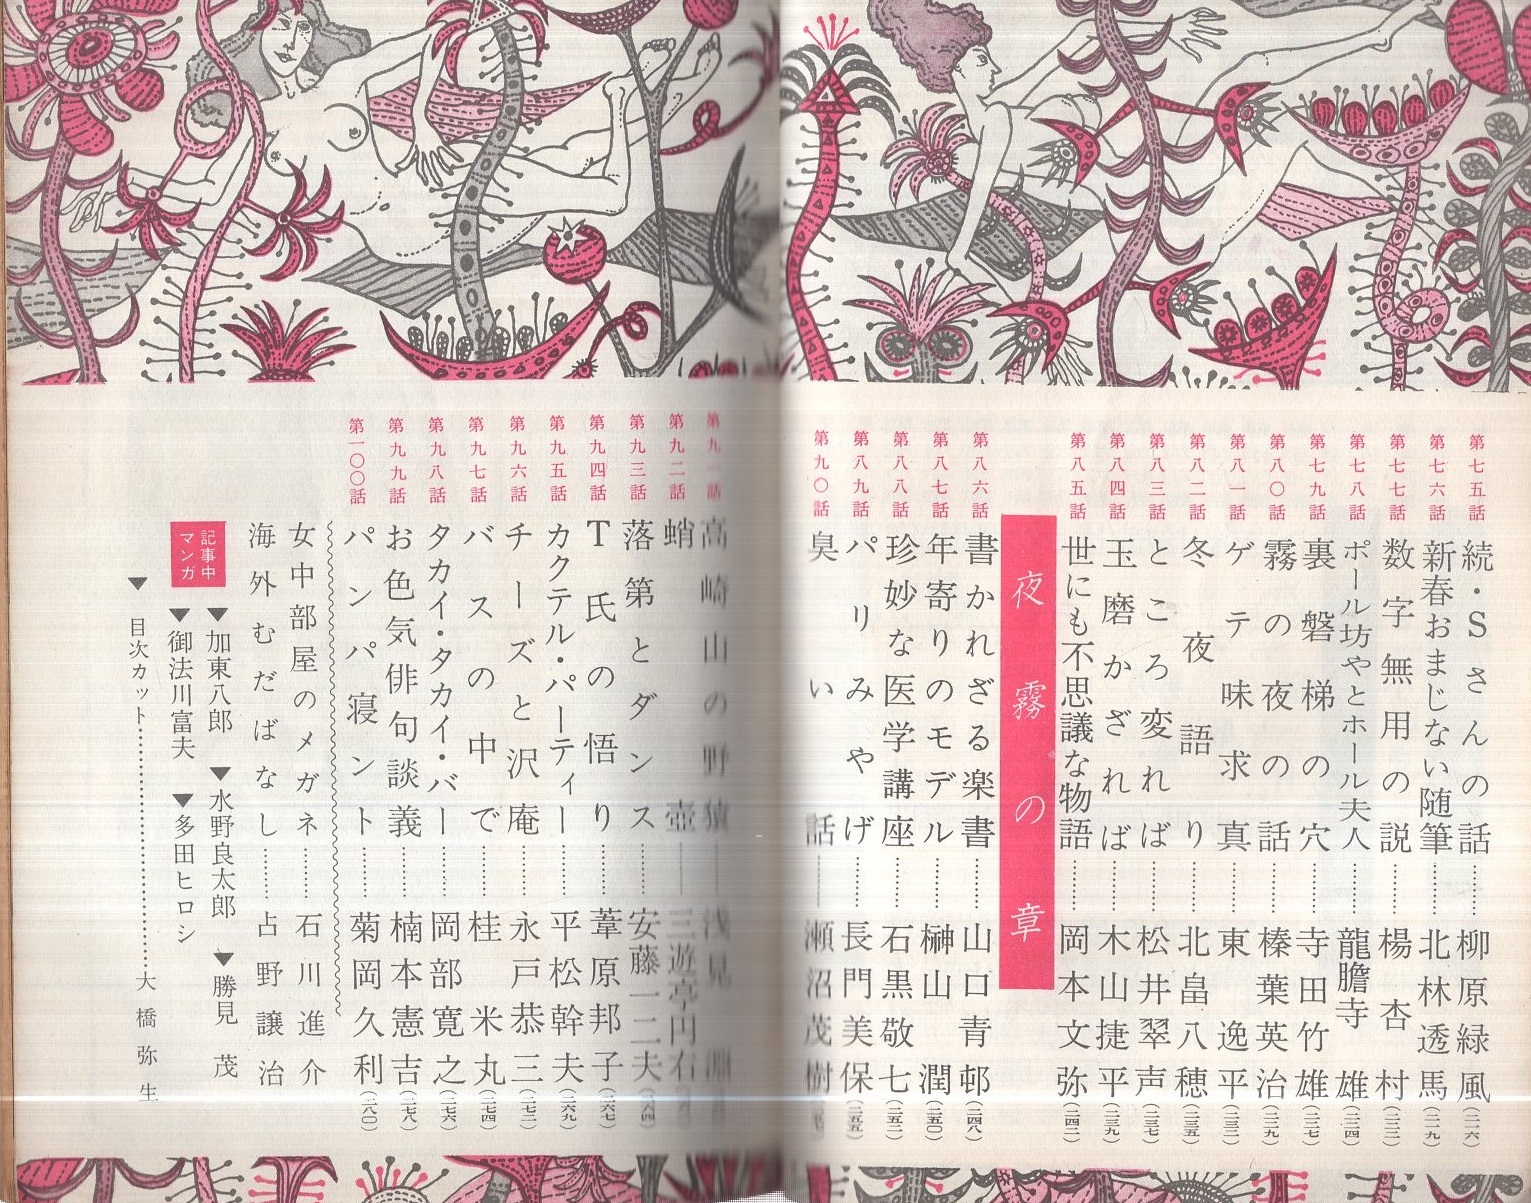 第七五話 続・Sさんの話………柳原緑風(二一六)
第七六話 新春おまじない随筆………北林透馬(二一九)
第七七話 数字無用の説………楊杏村(二二二)
第七八話 ポール坊やとホール夫人………龍膽寺雄(二二四)
第七九話 裏磐梯の穴………寺田竹雄(二二七)
第八〇話 霧の夜の話………榛葉英治(二二九)
第八一話 ゲテ味求真………東逸平(二三二)
第八二話 冬夜語り………北畠八穂(二三五)
第八三話 ところ変れば………松井翠声(二三七)
第八四話 玉磨かざれば………木山捷平(二三九)
第八五話 世にも不思議な物語………岡本文弥(二四二)
夜霧の章
第八六話 書かれざる楽書………山口青邨(二四八)
第八七話 年寄りのモデル………榊山潤(二五〇)
第八八話 珍妙な医学講座………石黒敬七(二五二)
第八九話 パリみやげ………長門美保(二五五)
第九〇話 臭い話………瀬沼茂樹
第九一話 高崎山の野猿………浅見淵
第九二話 蛸壺………三遊亭円右
第九三話 落第とダンス………安藤一二夫(二六四)
第九四話 T氏の悟り………葦原邦子(二六七)
第九五話 カクテル・パーティー………平松幹夫(二六九)
第九六話 チーズと沢庵………永戸恭三(二七二)
第九七話 バスの中で………桂米丸(二七四)
第九八話 タカイ・タカイ・バー………岡部寛之(二七六)
第九九話 お色気俳句談義………楠本憲吉(二七八)
第一〇〇話 パンパ寝ント………菊岡久利(二八〇)
女中部屋のメガネ………石川進介
海外むだばなし………占野譲治
記事中
マンガ
▼加東八郎 ▼水野良太郎 ▼勝見茂
▼御法川富夫 ▼多田ヒロシ
▼目次カット………大橋弥生